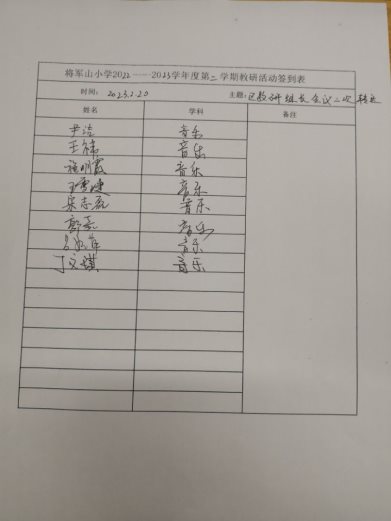 将军山小学2022——2023学年度第二学期教研活动签到表
时间: 2023.2.20 主题: 区教研组长会议二次转达
姓名 学科 备注
尹洁 音乐
王伟 音乐
程明霞 音乐
音乐
宋志磊 音乐
彭春 音乐
音乐
丁文琪 音乐